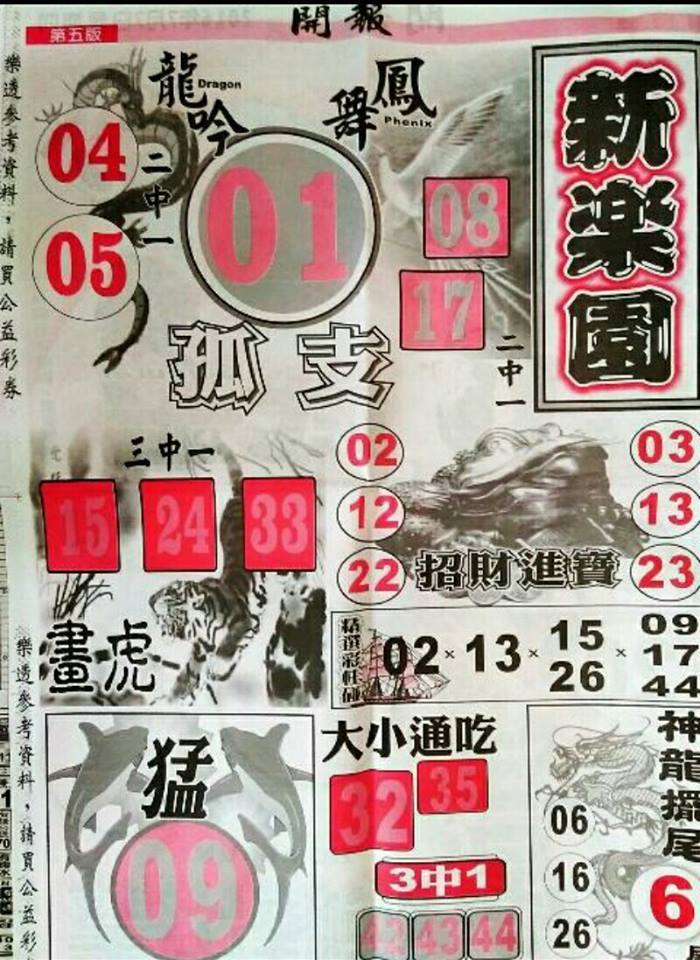 開報
第五版
樂透參考資料，請買公益彩券
龍吟
Dragon
鳳舞
Phenix
新楽園
04
05
二中一
01
08
17
二中一
孤支
三中一
15 24 33
畫虎
02 03
12 13
22 23
招財進寶
精選彩
02 × 13 × 15 26 × 09 17 44
樂透參考資料，請買公益彩券
猛
09
大小通吃
32 35
3中1
42 43 44
神龍擺尾
06
16
26
6